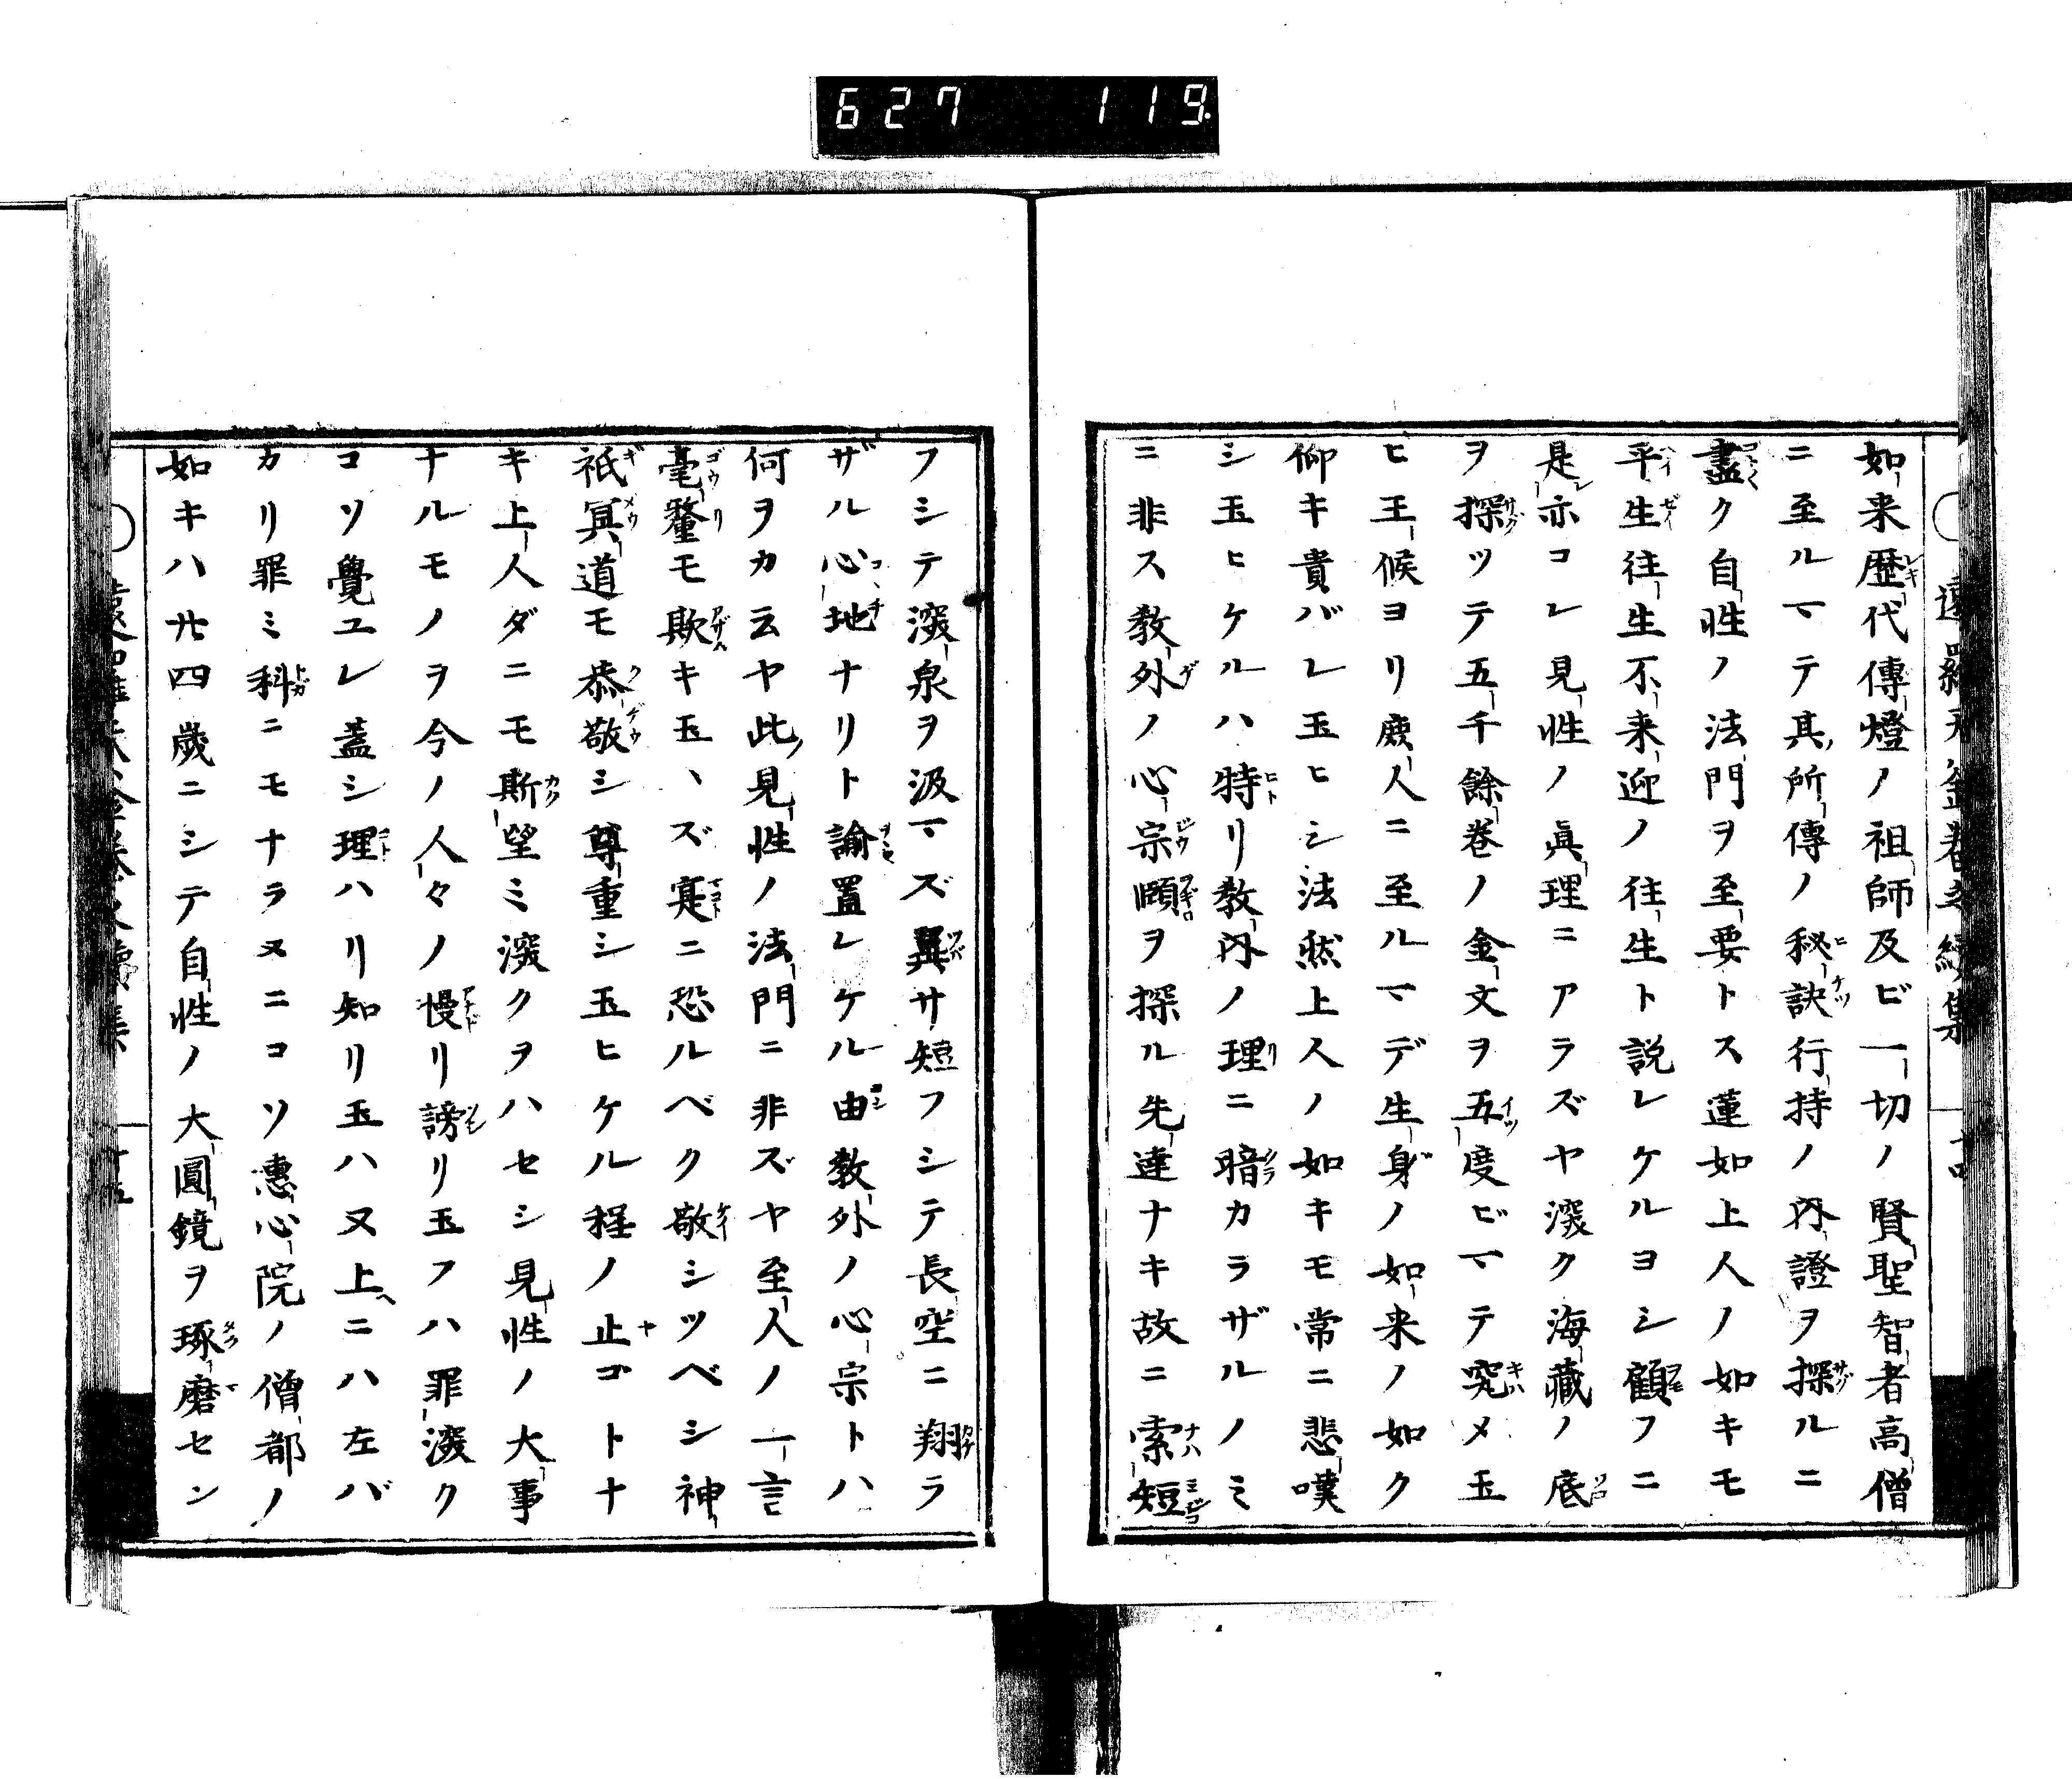 627 119
遠羅天釜巻之續集 十四
如来歴代傳燈ノ祖師及ビ一切ノ賢聖智者高僧
ニ至ルマテ其所傳ノ秘訣行持ノ内證ヲ探ルニ
盡ク自性ノ法門ヲ至要トス蓮如上人ノ如キモ
平生往生不来迎ノ往生ト説レケルヨシ顧フニ
是亦コレ見性ノ眞理ニアラズヤ深ク海藏ノ底
ヲ探ツテ五千餘巻ノ金文ヲ五度ビマテ究メ玉
ヒ王候ヨリ庶人ニ至ルマデ生身ノ如来ノ如ク
仰キ貴バレ玉ヒシ法然上人ノ如キモ常ニ悲嘆
シ玉ヒケルハ特リ教内ノ理ニ暗カラザルノミ
ニ非ス教外ノ心宗頤ヲ探ル先達ナキ故ニ索短
フシテ深泉ヲ汲マズ翼サ短フシテ長空ニ翔ラ
ザル心地ナリト諭置レケル由教外ノ心宗トハ
何ヲカ云ヤ此見性ノ法門ニ非ズヤ至人ノ一言
毫釐モ欺キ玉ハズ寔ニ恐ルベク敬シツベシ神
祇冥道モ恭敬シ尊重シ玉ヒケル程ノ止ゴトナ
キ上人ダニモ斯望ミ深クヲハセシ見性ノ大事
ナルモノヲ今ノ人々ノ慢リ謗リ玉フハ罪深ク
コソ覺ユレ蓋シ理ハリ知リ玉ハヌ上ニハ左バ
カリ罪ミ科ニモナラヌニコソ惠心院ノ僧都ノ
如キハ廿四歳ニシテ自性ノ大圓鏡ヲ琢磨セン
遠羅天釜巻之續集 十五